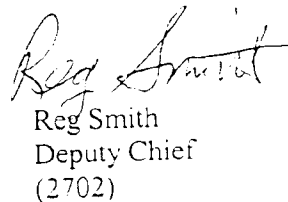 Reg Smith
Reg Smith
Deputy Chief
(2702)